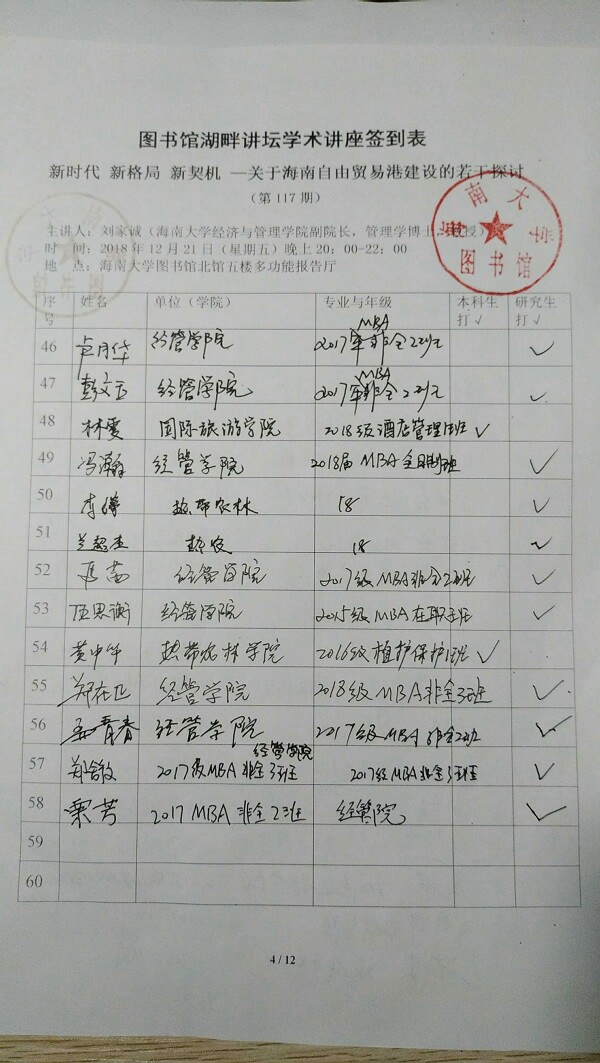 图书馆湖畔讲坛学术讲座签到表
新时代 新格局 新契机 —关于海南自由贸易港建设的若干探讨
（第 117 期）
主讲人：刘家诚（海南大学经济与管理学院副院长，管理学博士、教授）
时 间：2018 年 12 月 21 日（星期五）晚上 20：00-22：00
地 点：海南大学图书馆北馆五楼多功能报告厅
南大
图书馆
序号 姓名 单位（学院） 专业与年级 本科生打√ 研究生打√
46 卢月华 经管学院 2017 MBA 非全2班 √
47 彭文玉 经管学院 2017 MBA 非全2班 √
48 林雯 国际旅游学院 2018级酒店管理班 √
49 冯瀚 经管学院 2018届 MBA 全日制班 √
50 李 热带农林 18 √
51 热农 18 √
52 冯 经管学院 2017级MBA非全2班 √
53 伍思衡 经管学院 2015级MBA在职班 √
54 黄中华 热带农林学院 2016级植护保护1班 √
55 郑在卫 经管学院 2018级MBA非全3班 √
56 孟青春 经管学院 2017级MBA非全2班 √
57 郑 2017级MBA 非全3班 经管学院 2017级MBA非全3班 √
58 栗芳 2017 MBA 非全2班 经管院 √
59
60
4 / 12